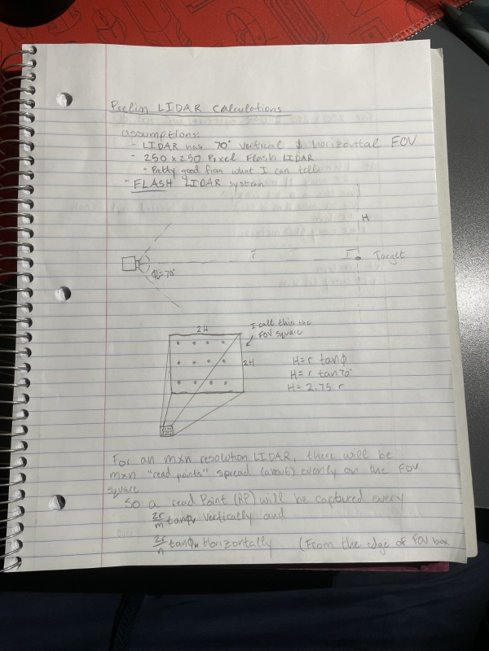 Prelim LIDAR Calculations
assumptions:
- LIDAR has 70° Vertical & Horizontal FOV
- 250 x 250 Pixel Flash LIDAR
- Pretty good from what I can tell
- FLASH LIDAR system
H
r
Target
= 70°
I call this the
FOV Square
2H
2H
H = r tanϕ
H = r tan70°
H = 2.75 r
For an mxn resolution LIDAR, there will be
mxn "read points" spread (about) evenly on the FOV
square
So a read Point (RP) will be captured every
2r/m tanϕ Vertically and
2r/n tanϕ Horizontally (From the edge of FOV box